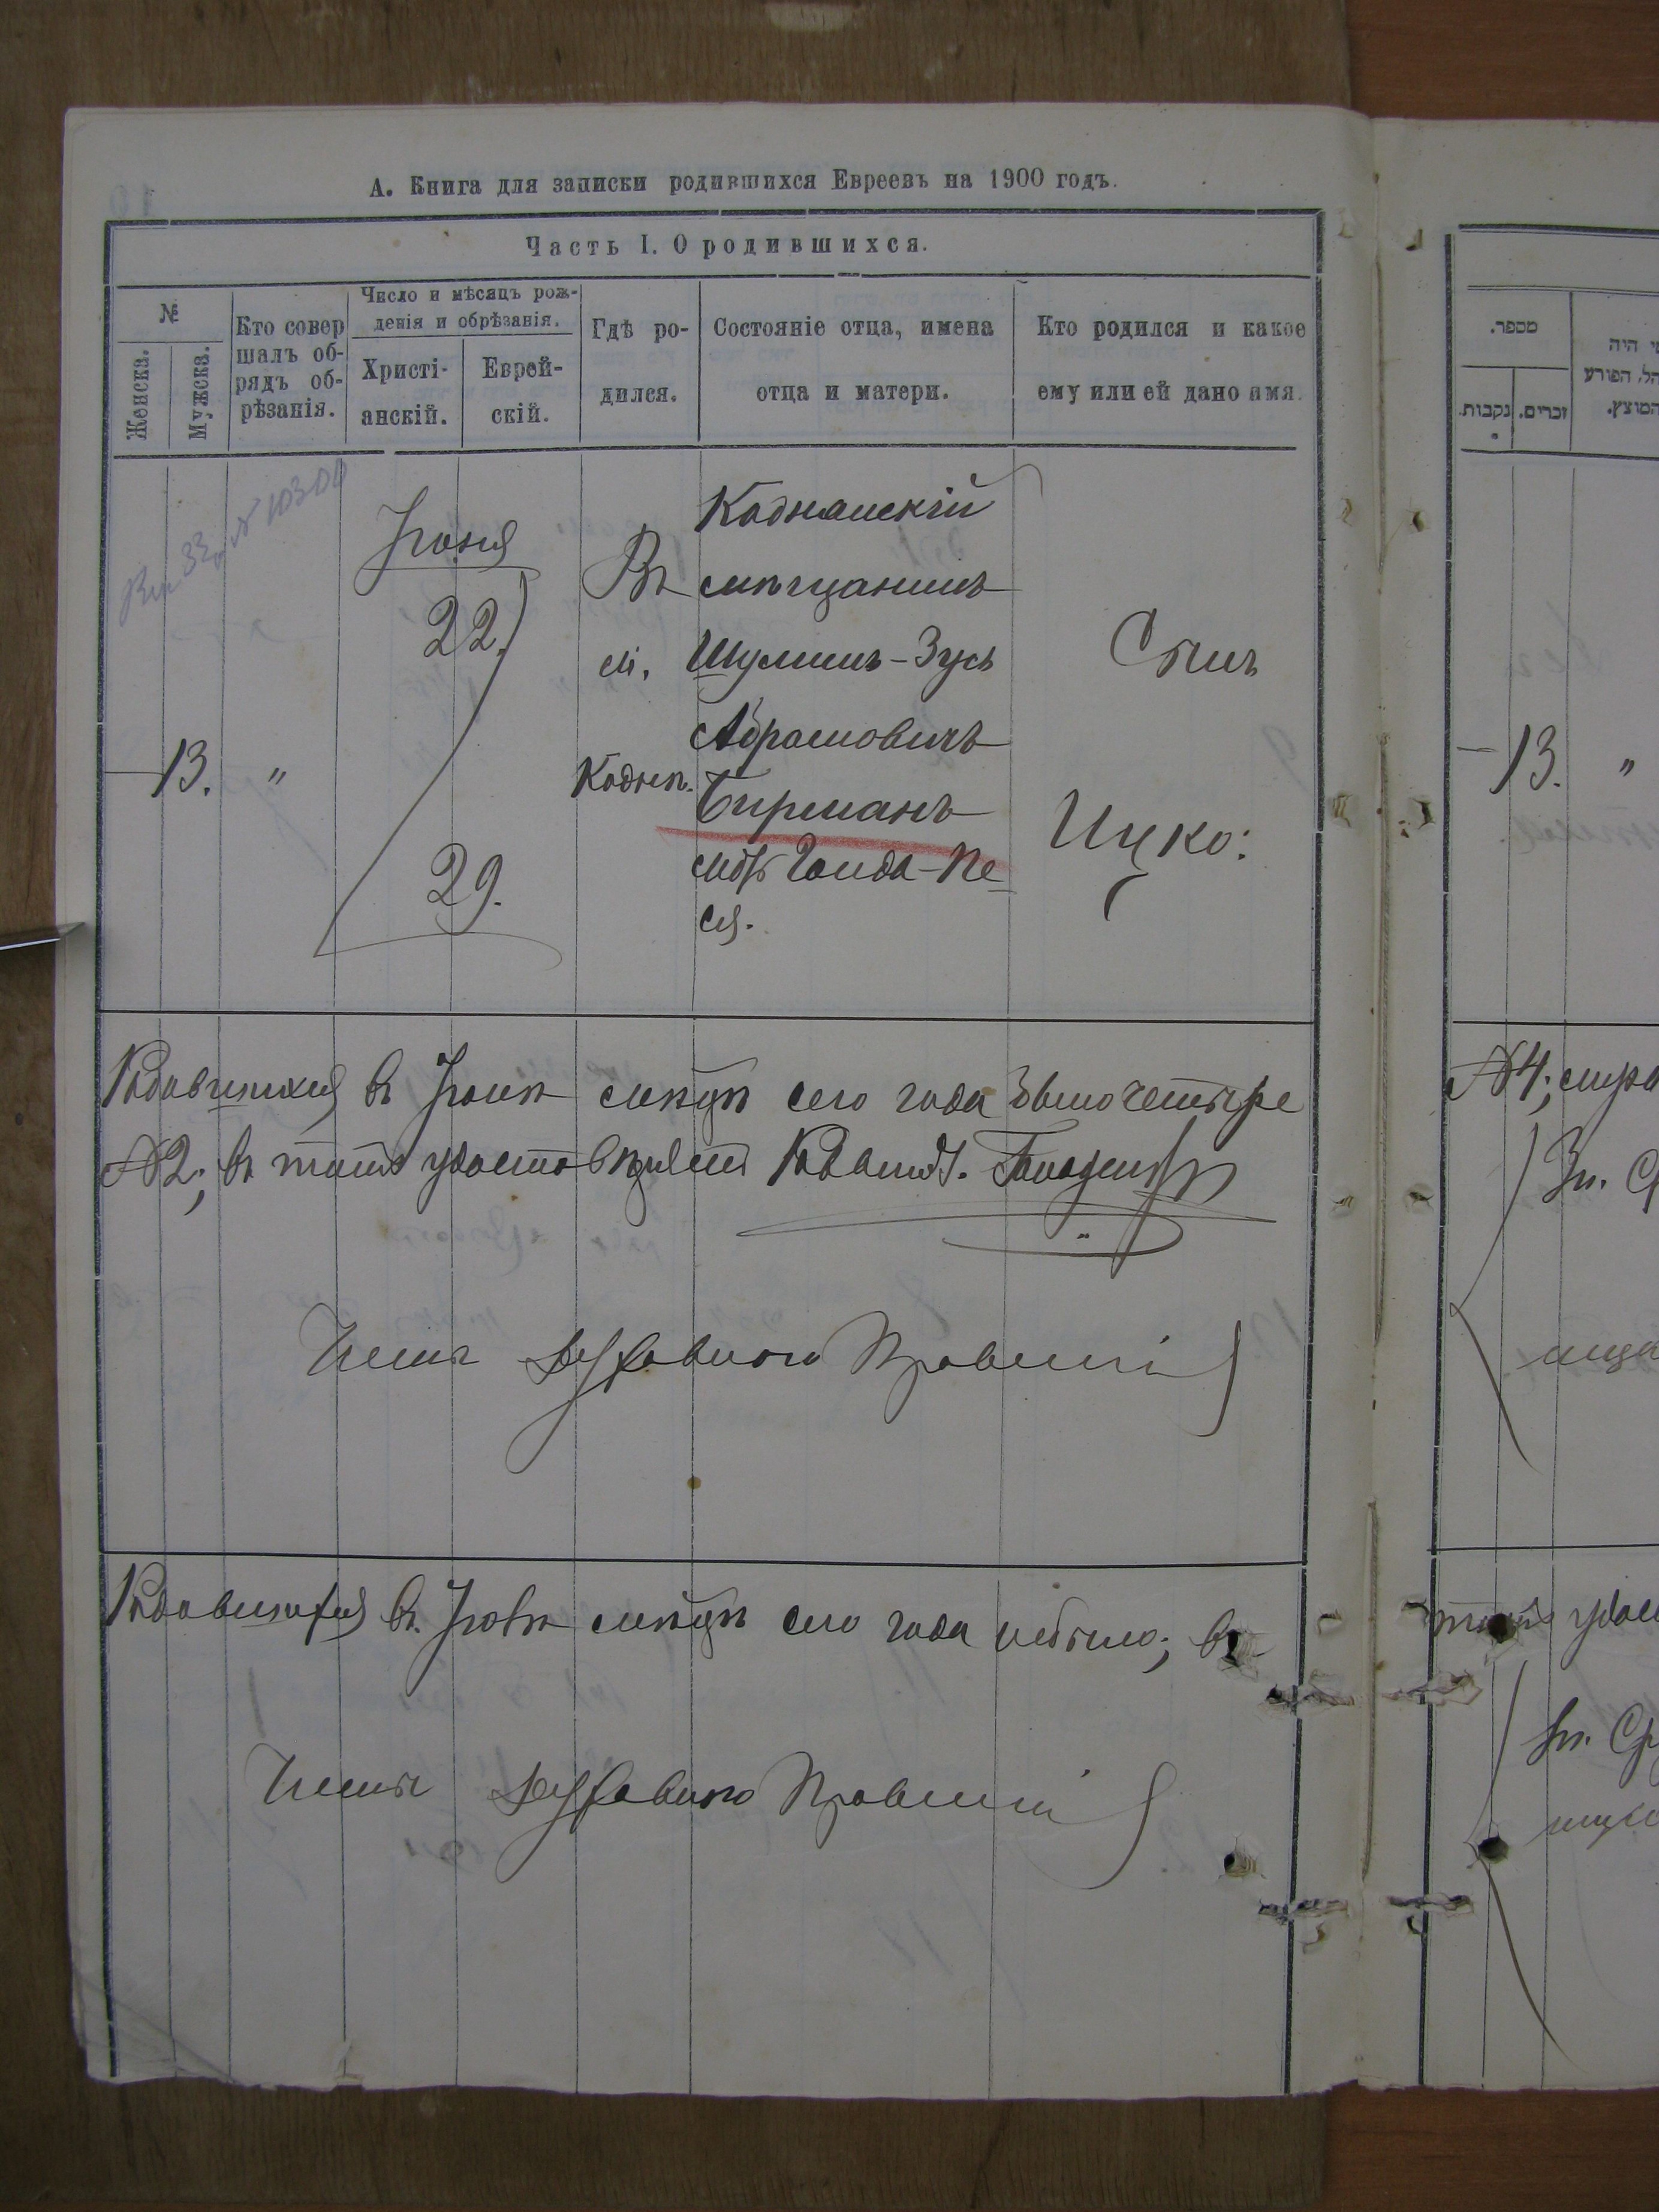 А. Книга для записки родившихся Евреевъ на 1900 годъ.
Часть I. О родившихся.
№
Женска.
Мужска.
Кто совер
шалъ об-
рядъ об-
рѣзанія.
Число и мѣсяцъ рож-
денія и обрѣзанія.
Христі-
анскій.
Еврей-
скій.
Гдѣ ро-
дился.
Состояніе отца, имена
отца и матери.
Кто родился и какое
ему или ей дано имя.
13.
"
Іюня
22.
29.
Въ
м.
Коднѣ.
Коднянскій
мѣщанинъ
Шулимъ-Зусь
Абрамовичъ
Бирманъ
Гольда-Пе-
ся.
Сынъ
Ицко:
Родившихся въ Іюнѣ мѣсяцѣ сего года было четыре
№ 2; въ томъ удостовѣряемъ
Члены Духовного Правленія
Родившихся въ Іюлѣ мѣсяцѣ сего года небыло; въ
Члены Духовного Правленія
מספר.
נקבות.
זכרים.
מי היה
המוצץ.
13.
"
№ 4;
томъ